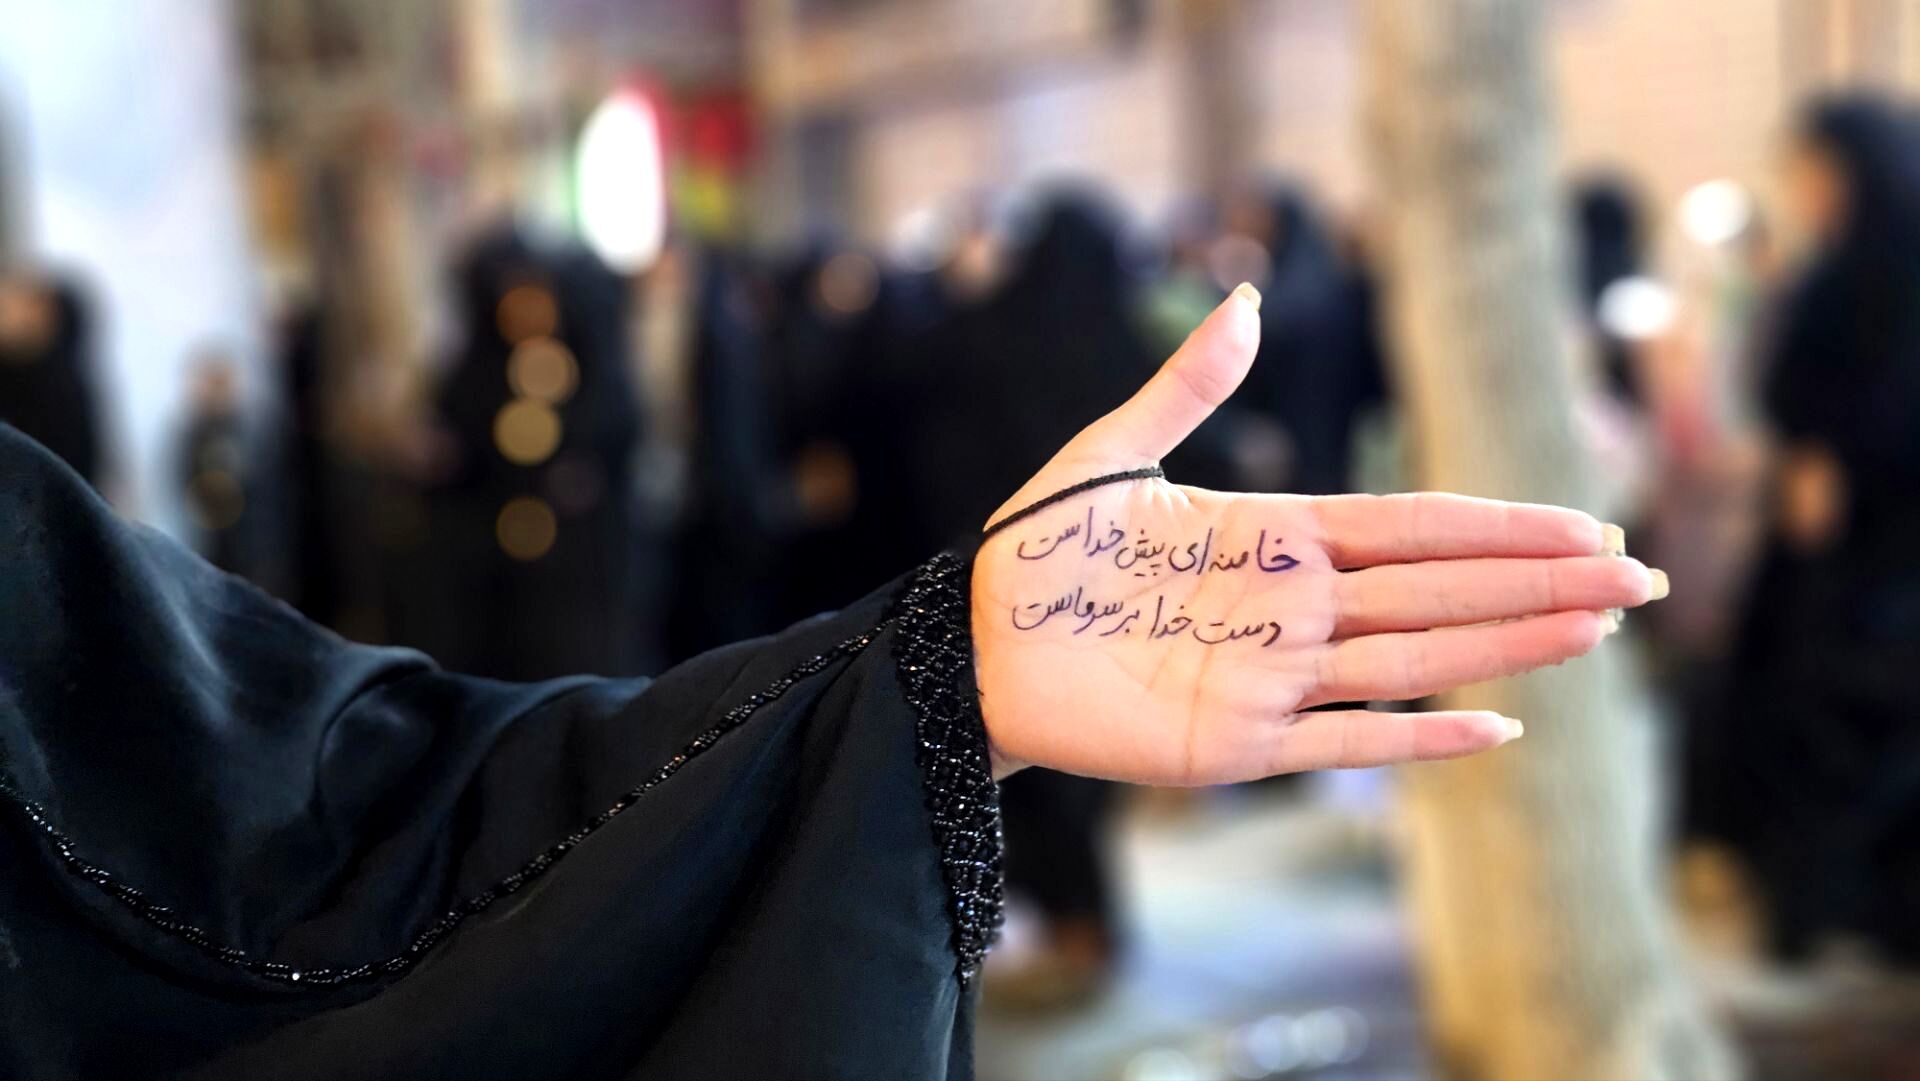 خامنه‌ای پیش خداست
دست خدا بر سر ماست